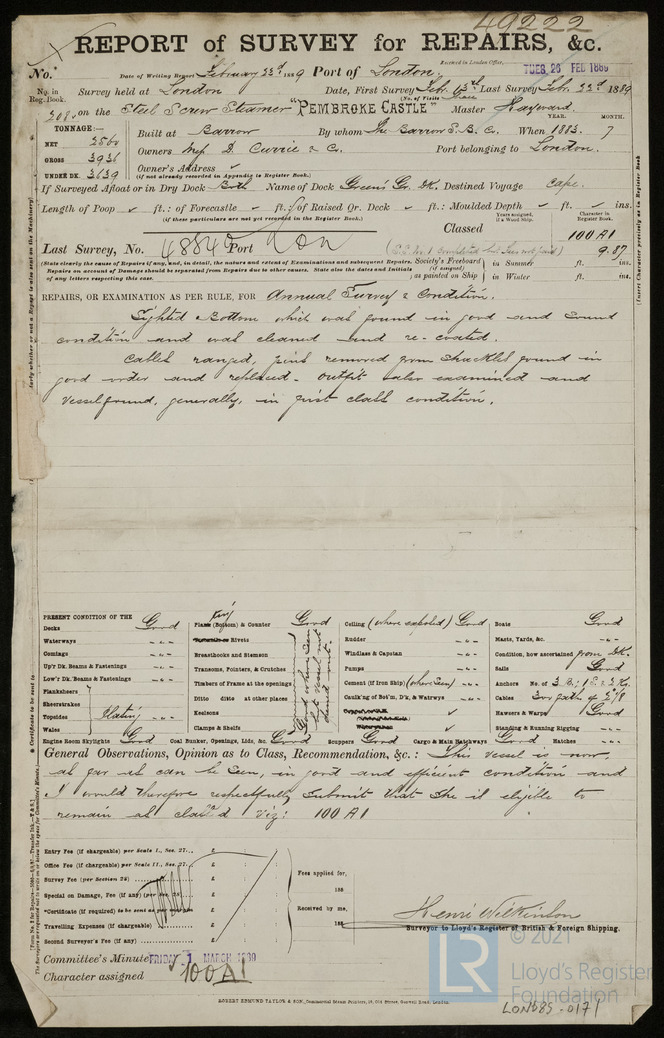 49222
REPORT of SURVEY for REPAIRS, &c.
Received in London Office,
TUES. 26 FEB 1889
No. Date of Writing Report February 23rd 1889 Port of London.
No. in Reg. Book. Survey held at London Date, First Survey Feb. Last Survey Feb. 22nd 1889
(No. of Visits
208 on the Steel Screw Steamer "PEMBROKE CASTLE" Master Hayward
TONNAGE:
NET 2560
GROSS 3936
UNDER DK. 3639
Built at Barrow By whom The Barrow S.B. Co. When 1883. YEAR. MONTH. 7
Owners Messrs D. Currie & Co. Port belonging to London.
Owners' Address
(if not already recorded in Appendix to Register Book.)
If Surveyed Afloat or in Dry Dock Both Name of Dock Green's Gr. DK. Destined Voyage Cape.
Length of Poop ft.: of Forecastle ft.: of Raised Qr. Deck ft.: Moulded Depth ft. ins.
(if these particulars are not yet recorded in the Register Book.)
Years assigned, if a Wood Ship. Character in Register Book.
Classed 100 A1
9.87
Last Survey, No. 48840 Port Lon
(State clearly the cause of Repairs if any, and, in detail, the nature and extent of Examinations and subsequent Repairs.
Repairs on account of Damage should be separated from Repairs due to other causes. State also the dates and Initials of any letters respecting this case.)
Society's Freeboard (if assigned) as painted on Ship in Summer ft. ins.
in Winter ft. ins.
REPAIRS, OR EXAMINATION AS PER RULE, FOR Annual Survey & Condition.
Sighted Bottom which was found in good and sound
condition and was cleaned and re-coated.
Cables ranged, pins removed from shackles found in
good order and replaced. Outfit also examined and
Vessel found, generally, in first class condition.
PRESENT CONDITION OF THE
Decks Good
Waterways
Comings
Up'r Dk. Beams & Fastenings
Low'r Dk. Beams & Fastenings
Planksheers
Sheerstrakes
Topsides Plating
Wales
Plank (Bottom) & Counter Good
Rivets
Breasthooks and Stemson
Transoms, Pointers, & Crutches
Timbers of Frame at the openings
Ditto ditto at other places
Keelsons
Clamps & Shelfs
Good where seen
Ceiling (where exposed) Good
Rudder
Windlass & Capstan
Pumps
Cement (if Iron Ship) (where seen)
Caulk'ng of Bot'm, D'k, & Watrwys
Boats Good
Masts, Yards, &c.
Condition, how ascertained from DK.
Sails Good
Anchors No. of 3 B; 1 S.
Cables
Hawsers & Warps Good
Standing & Running Rigging
Engine Room Skylights Good Coal Bunker, Openings, Lids, &c. Good Scuppers Good Cargo & Main Hatchways Good Hatches
General Observations, Opinion as to Class, Recommendation, &c.: This vessel is now,
as far as can be seen, in good and efficient condition and
I would therefore respectfully submit that she is eligible to
remain as class'd viz: 100 A1
Entry Fee (if chargeable) per Scale I., Sec. 27 £
Office Fee (if chargeable) per Scale II., Sec. 27 £
Survey Fee (per Section 28) £
Special on Damage, Fee (if any) (per Sec. 28) £
*Certificate (if required) to be sent as per margin
Travelling Expenses (if chargeable) £
Second Surveyor's Fee (if any) £
Fees applied for,
188
Received by me,
188
Henri Wilkinson
Surveyor to Lloyd's Register of British & Foreign Shipping.
Committee's Minute FRIDAY 1 MARCH 1889
Character assigned 100A1
ROBERT EDMUND TAYLOR & SON,
LR
© 2021
Lloyd's Register
Foundation
LON885-0171